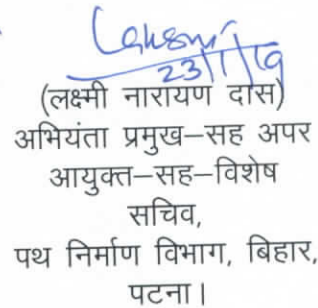 Lakshmi
23/1/19
(लक्ष्मी नारायण दास)
अभियंता प्रमुख–सह अपर
आयुक्त–सह–विशेष
सचिव,
पथ निर्माण विभाग, बिहार,
पटना।